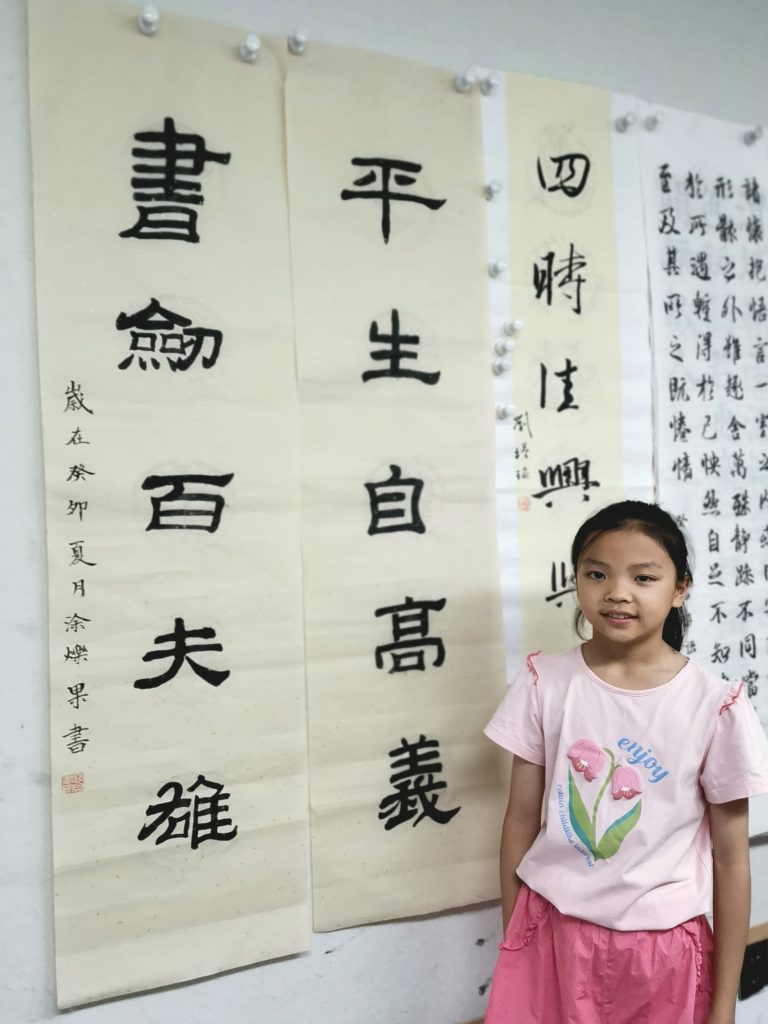 諸懷抱悟言一室之內或因
形骸之外雖趣舍萬殊靜躁不同當
於所遇蹔得於己快然自足不知
至及其所之既惓情
四時佳興與
劉
平生自高義
書劒百夫雄
歲在癸卯夏月涂爍果書
enjoy